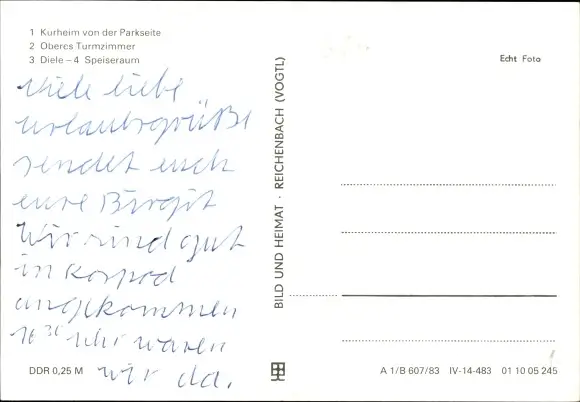 1 Kurheim von der Parkseite
2 Oberes Turmzimmer
3 Diele – 4 Speiseraum
Viele liebe
Urlaubsgrüße
sendet euch
eure Birgit
Wir sind gut
in
angekommen
16³⁰ Uhr waren
wir da.
DDR 0,25 M
BILD UND HEIMAT · REICHENBACH (VOGTL)
Echt Foto
A 1/B 607/83 IV-14-483 01 10 05 245